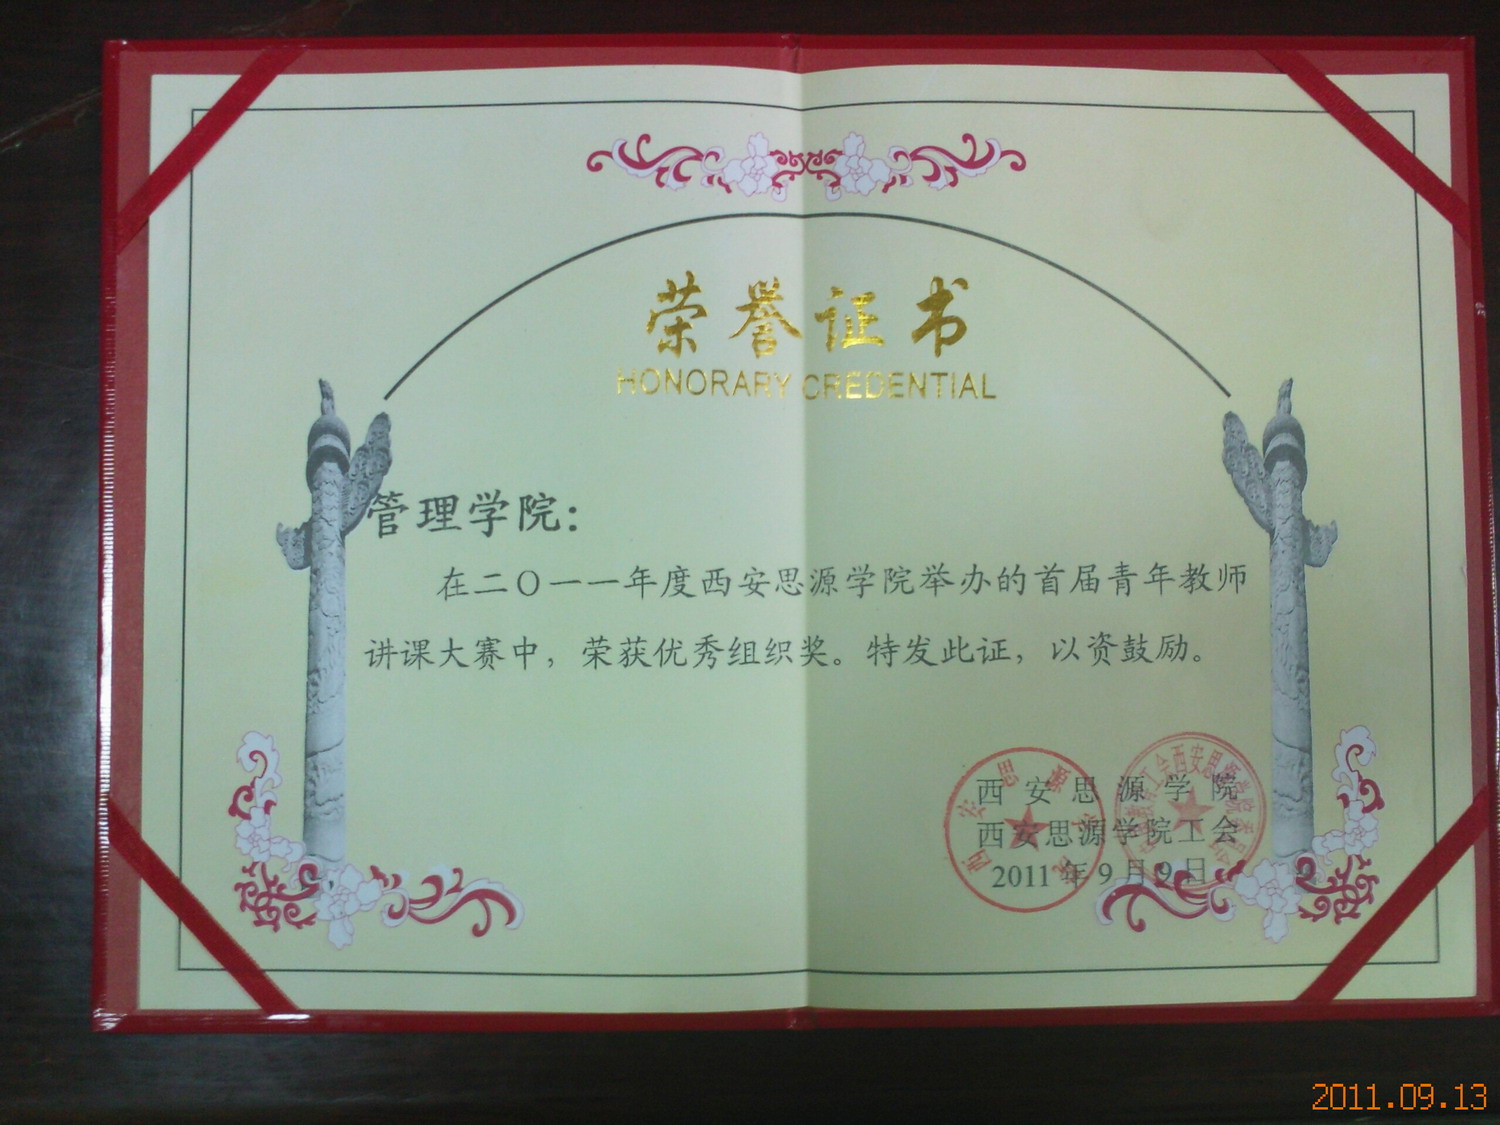 荣誉证书
HONORARY CREDENTIAL
管理学院：
在二〇一一年度西安思源学院举办的首届青年教师
讲课大赛中，荣获优秀组织奖。特发此证，以资鼓励。
西安思源学院
西安思源学院工会
2011年9月9日
2011.09.13